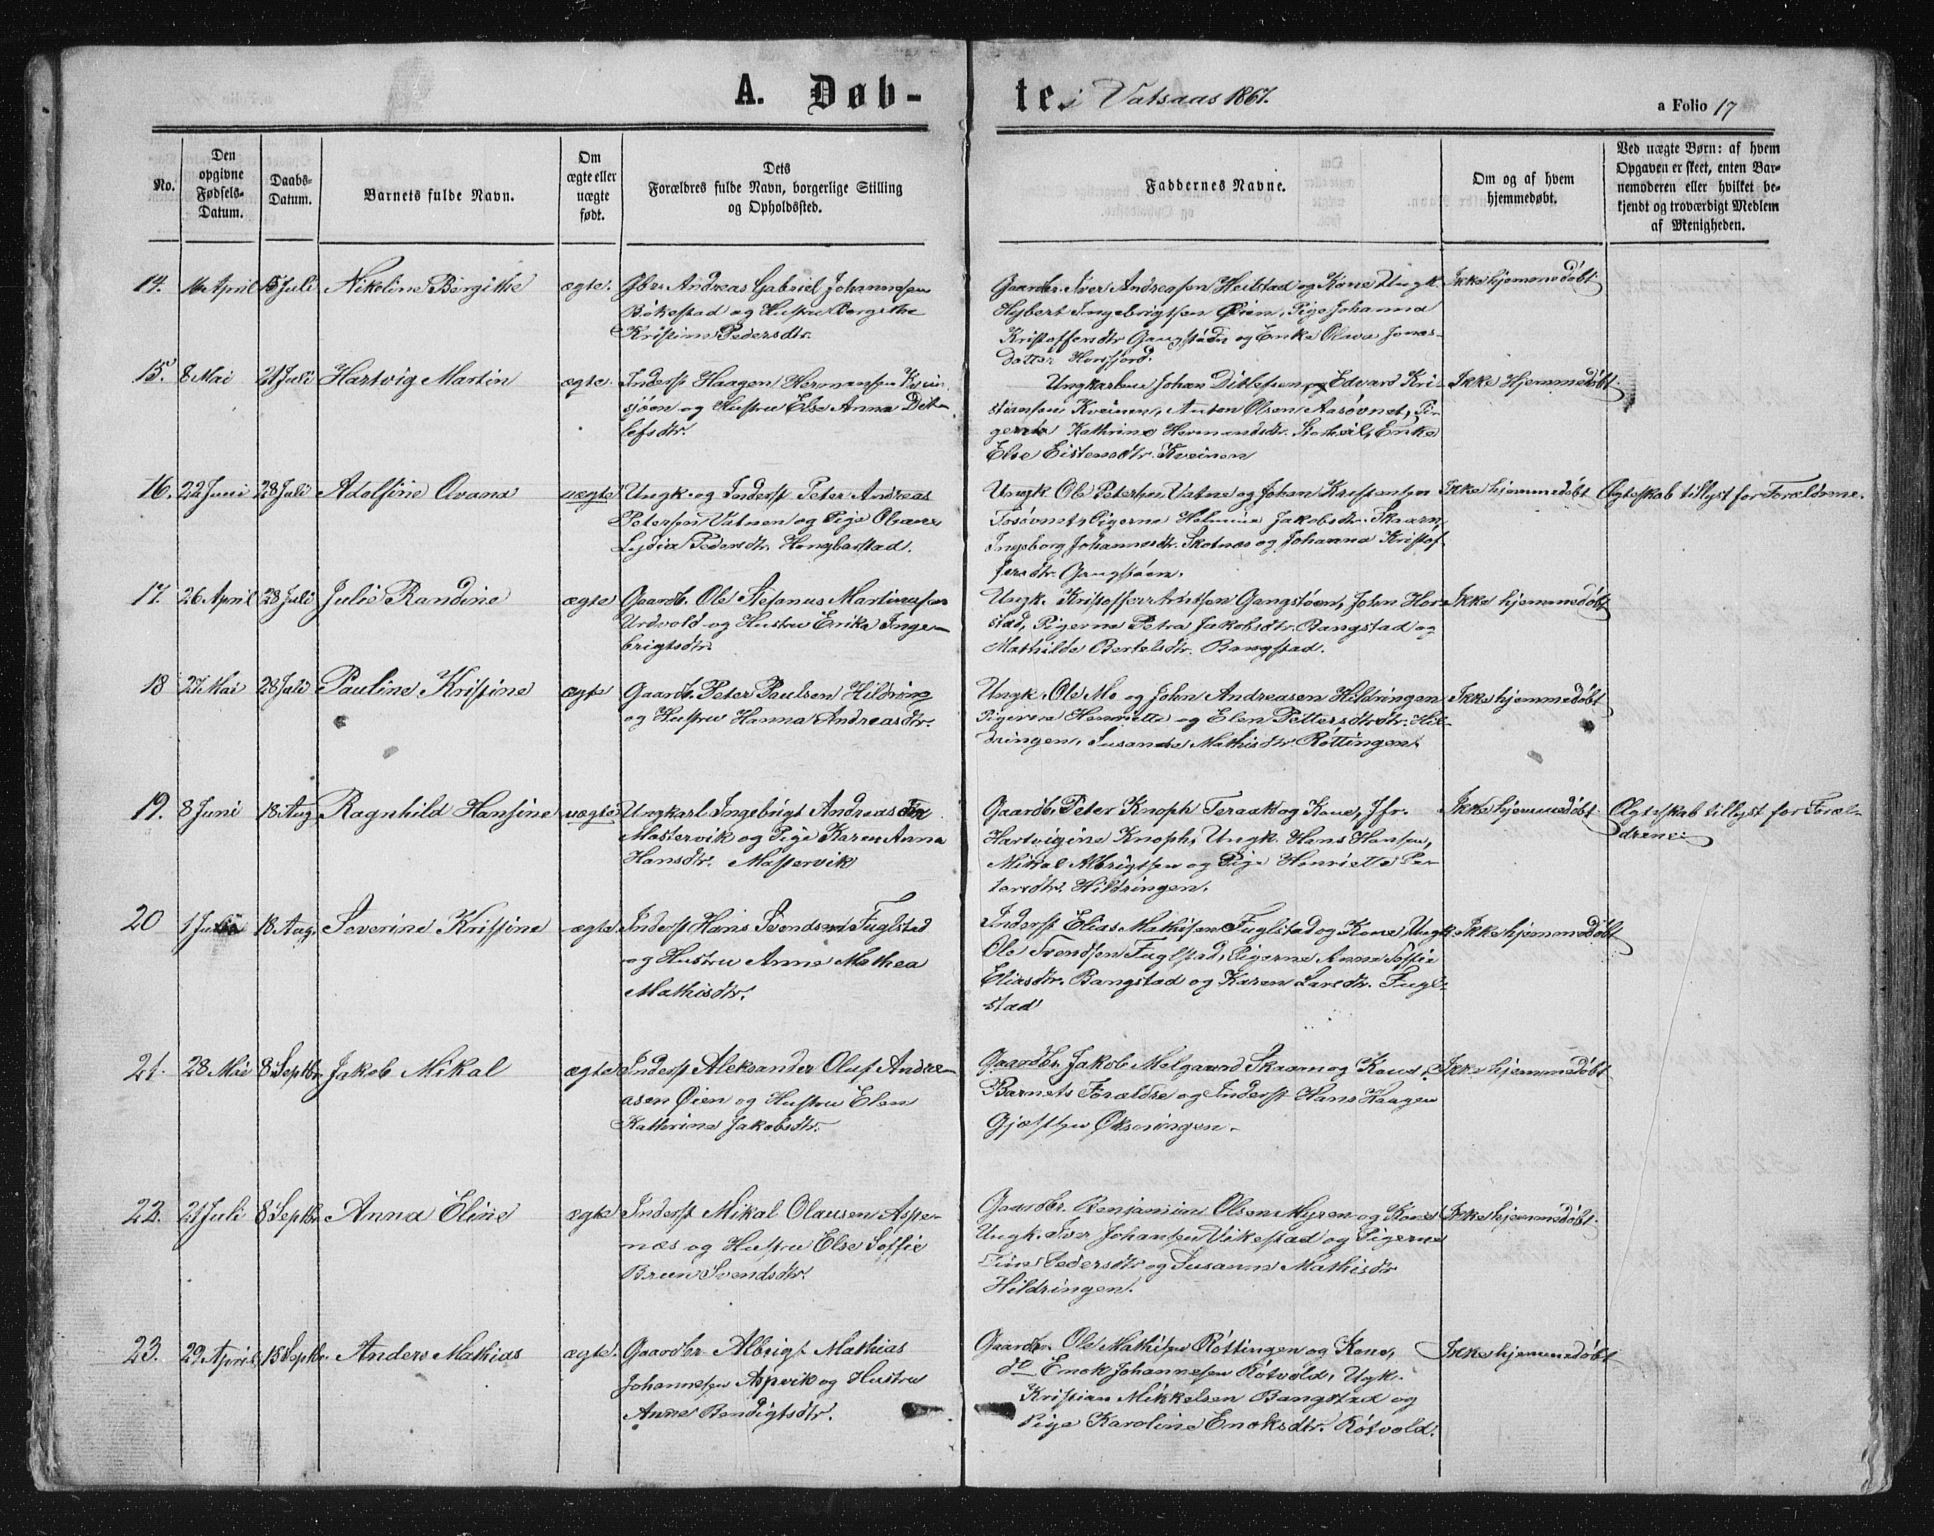 A. Døb-
te. i Vatsaas 1867.
a Folio 17
No.
Den opgivne Fødsels-Datum.
Daabs-Datum.
Barnets fulde Navn.
Om ægte eller uægte født.
Dets Forældres fulde Navn, borgerlige Stilling og Opholdssted.
Faddernes Navne.
Om og af hvem hjemmedøbt.
Ved uægte Børn: af hvem Opgaven er skeet, enten Barnemoderen eller hvilket bekjendt og troværdigt Medlem af Menigheden.
14. 16 April 15 Juli Nikoline Bergithe ægte.
Gbr. Andreas Gabriel Johannesen
og Hustru Bergithe
Kristine Pedersdtr.
Gaardbr. Iver Andreasen Heilstad og Kone Ungk.
Hybert Ingebrigtsen Øien, Pige Johanna
Kristoffersdtr Gangstöen og Enke Olava Jonas-
datter Horsfjord.
Ikke hjemmedøbt
15. 8 Mai 21 Juli Hartvig Martin ægte.
Inderst Haagen Hermansen Kvein-
sjøen og Hustru Else Anna Dit-
lefsdtr.
Ungkarlene Johan Ditlefsen og Edvard Kri-
stiansen Kveinen, Anton Olsen Aasøvnet, Pi-
gerne Kathrine Hermandsdtr. Enke
Else Eistensdtr. Kveinen
Ikke Hjemmedøbt
16. 22 Juni 28 Juli Adolfine Ovana uægte
Ungk. og Inderst Peter Andreas
Petersen Vatnen og Pige Olvane
Lydia Pedersdtr. Hongbarstad.
Ungk. Ole Petersen Vatne og Johan Kristensen
Tosøvnet, Pigerne Helmine Jakobsdtr. Skaarn,
Ingeborg Johannesdtr. Skotnes og Johanna Kristof-
fersdtr. Gangstöen.
Ikke hjemmedøbt
Ægteskab tillyst for Forældrene.
17. 26 April 28 Juli Julie Randine ægte
Gaardb. Ole Stefanus Martinusen
Urdvold og Hustru Erika Inge-
brigtsdtr.
Ungk. Kristoffer Arntsen Gangstöen, John Hor-
stad, Pigerne Petra Jakobsdtr. Bangstad og
Mathilde Bertelsdtr. Bangstad.
Ikke hjemmedøbt
18 27 Mai 28 Juli Pauline Kristine ægte
Gaardb. Peter Paulsen Hildring
og Hustru Hanna Andreasdtr.
Ungk. Ole Mo og John Andreasen Hildringen
Pigerne Henriette og Elen Pettersdtr. Hil-
dringen, Susanne Mathisdtr. Röttingen.
Ikke hjemmedøbt
19. 8 Juni 18 Aug Ragnhild Hansine uægte
Ungkarl Ingebrigt Andreas
Mastervik og Pige Karen Anna
Hansdtr. Mastervik
Gaardbr. Peter Knoph Teraak og Kone, Jfr.
Hartvigine Knoph, Ungk. Hans Hansen,
Mikal Albrigtsen og Pige Henriette Pe-
tersdtr. Hildringen.
Ikke hjemmedøbt
Ægteskab tillyst for Foræl-
drene.
20 1 18 Aug. Severine Kristine ægte
Inderst Hans Svendsen Fuglstad
og Hustru Anne Mathea
Mathisdtr.
Inderst Elias Mathisen Fuglstad og Kone, Ungk.
Ole Svendsen Fuglstad, Pigerne Anne Soffie
Eliasdtr. Bangstad og Karen Larsdtr. Fugl-
stad
Ikke hjemmedøbt
21. 28 Mai 8 Septbr. Jakob Mikal ægte
Inderst Aleksander Oluf Andre-
asen Øien og Hustru Elen
Kathrine Jakobsdtr.
Gaardbr. Jakob Melgaard Skaarn og Kone,
Barnets Forældre og Inderst Hans Haagen
Gjætsen Øksningen.
Ikke hjemmedøbt
22. 21 Juli 8 Septbr Anna Eline ægte
Inderst Mikal Olausen Aspe-
næs og Hustru Else Soffie
Brun Svendsdtr.
Gaardbr. Benjamin Olsen Myren og Kone
Ungk. Iver Johansen Vikestad og Pigerne
Pedersdtr og Susanne Mathisdtr
Hildringen.
Ikke hjemmedøbt
23. 29 April 15 Septbr. Anders Mathias ægte.
Gaardbr Albrigt Mathias
Johannesen Aspvik og Hustru
Anne Bendigtsdtr.
Gaardbr. Ole Mathisen Röttingen og Kone,
do Enok Johannesen Rötvold, Ungk.
Kristian Mikkelsen Bangstad og
Pige Karoline Enoksdtr. Rötvold.
Ikke hjemmedøbt